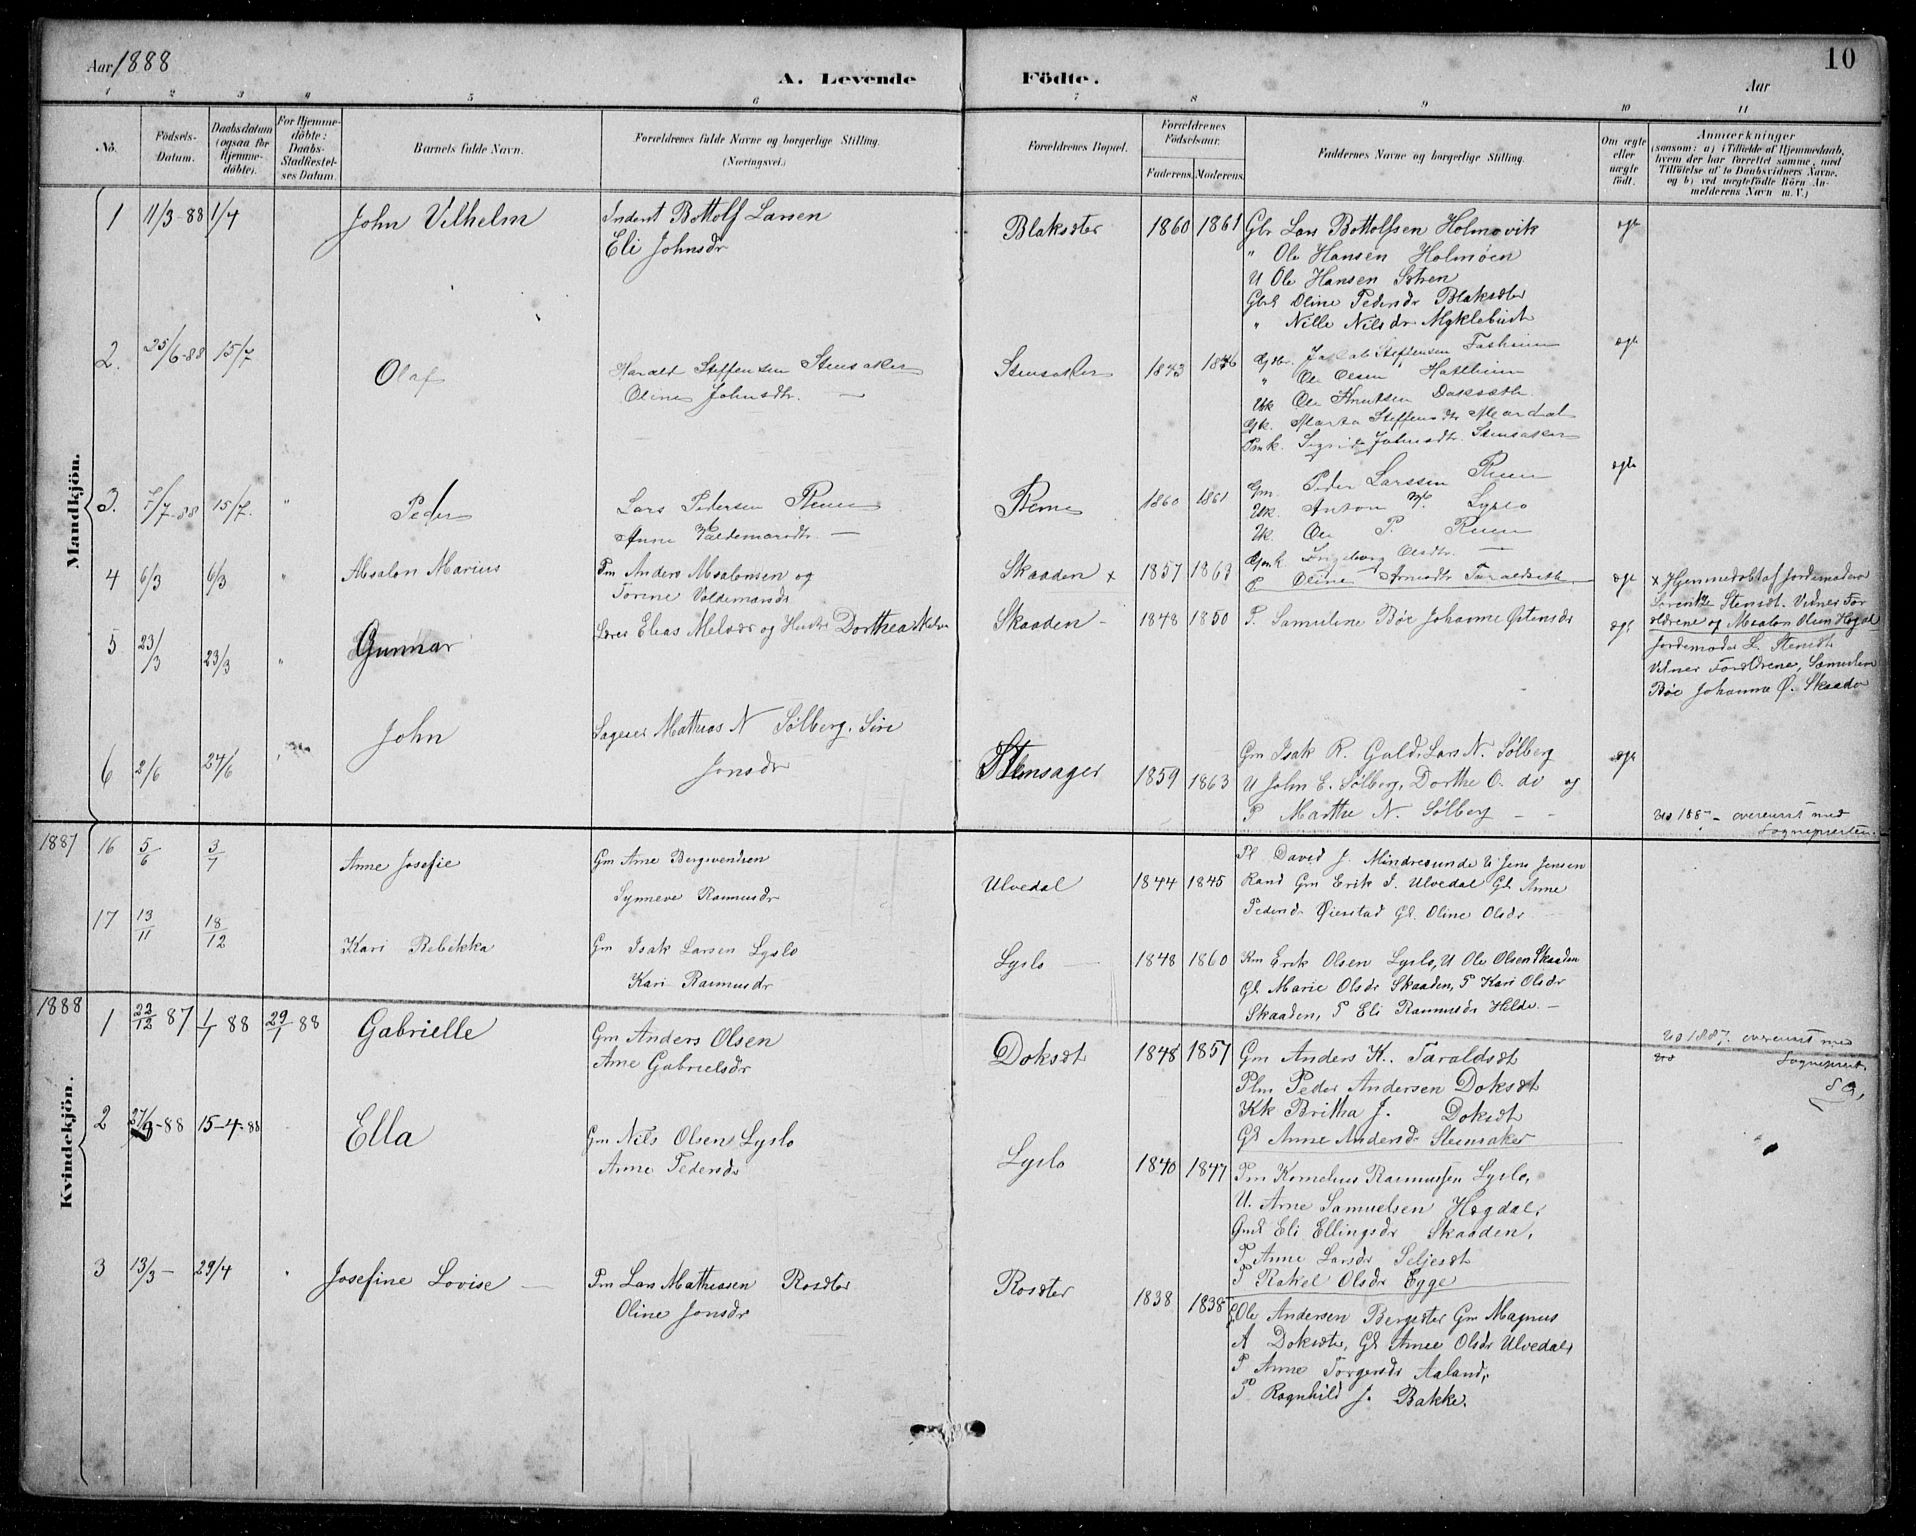 Aar 1888
A. Levende Födte.
10
Aar
1 2 3 4 5 6 7 8 9 10 11
No.
Födsels-Datum.
Daabsdatum (ogsaa for Hjemme-döbte).
For Hjemme-döbte: Daabs-Stadfæstel-ses Datum.
Barnets fulde Navn.
Forældrenes fulde Navne og borgerlige Stilling. (Næringsvei.)
Forældrenes Bopæl.
Forældrenes Födselsaar.
Faderens. Moderens.
Faddernes Navne og borgerlige Stilling.
Om ægte eller uægte födt.
Anmærkninger
(saasom: a) i Tilfælde af Hjemmedaab, hvem der har forrettet samme, med Tilföielse af to Daabsvidners Navne, og b) ved uægtefödte Börn An-melderens Navn m. V.)
Mandkjön.
1 11/3-88 1/4 John Vilhelm Inderst Bottolf Larsen Blaksæter 1860 1861 Gbr Lars Bottolfsen Holmøvik ægte
Eli Johnsdr
" Ole Hansen Holmøen
U Ole Hansen Sætren
Gbrk Oline Pedersdr Blaksæter
" Nille Nilsdr Myklebust
2. 25/6-88 15/7 Olaf Harald Steffensen Stensaker Stensaker 1843 1846 Gbr. Jakob Steffensen Taskeim ægte
Oline Johnsdtr.
" Ole Olsen Hattheim
Uk Ole Knutsen Doksæth
Gk. Marta Steffensdtr Mardal
Pmk. Sigrid Johnsdtr. Stensaker
3. 7/7-88 15/7. " Peder Lars Pedersen Reme Reme 1860 1861 Gm. Peder Larssen Reme ægte
Anne Valdemarsdtr.
Uk. Anton Lyslo
Uk. Ole P. Reme
Gmk. Ingeborg Olsdtr.
4 6/3 6/3 " Absalon Marius Pm Anders Absalonsen og Skaaden x 1857 1863 P Oline Arnesdtr Taraldsæth ægte x Hjemmedøbt af Jordemoder
Torine Valdemarsdr
Lorentze Stensdt. Vidner For
ældrene og Absalon Olsen Hogdal
5 23/3 23/3 " Gunnar Lærer Elias Melvær og Hustr Dorthea Melv. Skaaden 1848 1850 P. Samuline Bøe Johanne Østensdr ægt
Jordemoder L. Stensdt
Vidner Forældrene, Samuline
Bøe Johanne Ø. Skaade
6 2/6 24/6 " John Sageier Mathias N Sølberg. Siri Stensager 1859 1863 Gm Isak R. Gald. Lars N. Sølberg ægte
Jonsdr
U John E. Sølberg, Dorthe O. do og
P Marthe N. Sølberg
No 188 - overenst med
Sognepresten.
1887 16 5/6 3/7 Anne Josefie Gm Arne Bergsvendsen Ulvedal 1844 1845 Pl David J. Mindresunde U Jens Jensen
Synneve Rasmusdr
Rand Gm Erik J. Ulvedal Gk Anne
Pedersdr Øierstad Gk. Oline Olsdr
17 13/11 18/12 Kari Rebekka Gm Isak Larsen Lyslo Lyslo 1848 1860 Km Erik Olsen Lyslo, U Ole Olsen Skaaden
Kari Rasmusdr
Gk Marie Olsdr Skaaden, P Kari Olsdr
Skaaden, P Eli Rasmusdr Helde
Kvindekjön.
1888 1 22/12 87 1/1 88 29/1 88 Gabrielle Gm Anders Olsen Doksæt 1848 1857 Gm Anders K. Taraldsæt No 1887. overenst med
Ane Gabrielsdr
Sognepræst.
Plm Peder Andersen Doksæt
Kk Britha J. Doksæt
Gk Anne Andersdr Steinsaker
2 27/3-88 15-4-88 Ella Gm Nils Olsen Lyslo Lyslo 1840 1847 Pm Kornelius Rasmussen Lyslo,
Anne Pedersdr
U. Arne Samuelsen Hogdal,
Gmk Eli Ellingsdr Skaaden,
P. Anne Larsdr Seljesæt
P Rakel Olsdr Egge
3 13/3 - 29/4 " Josefine Lovise Pm Lars Mathiasen Rosæter Rosæter 1838 1838 G. Ole Andersen Bergester Gm Magnus
Oline Jonsdr
A Doksæter, Gk Anne Olsdr Ulvedal,
P Anne Torgersdr Aaland,
P. Ragnhild J. Bakke.